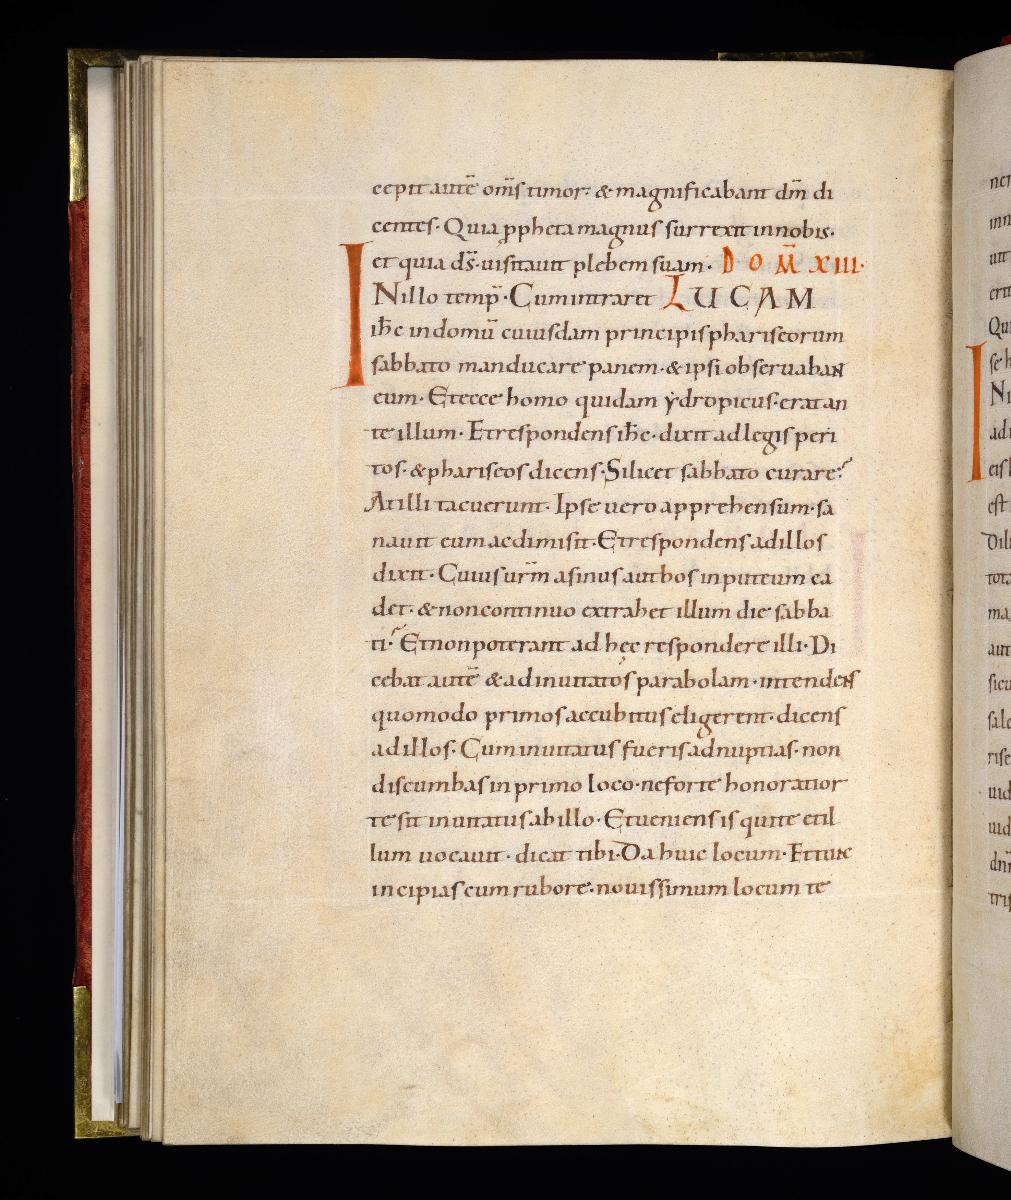 cepit autē om̄s timor· & magnificabant dm̄ di
centes· Quia ppheta magnus surrexit in nobis·
et quia ds̄· uisitauit plebem suam· DOM̄ XIII·
INillo temp̄· Cum intraret LUCAM
ih̄c in domū cuiusdam principis phariseorum
sabbato manducare panem· & ipsi obseruabant
eum· Et ecce homo quidam ydropicus· erat an
te illum· Et respondens ih̄c· dixit ad legis peri
tos· & phariseos dicens· Si licet sabbato curare?
At illi tacuerunt· Ipse uero apprehensum· sa
nauit eum ac dimisit· Et respondens ad illos
dixit· Cuius ur̄m asinus aut bos in puteum ca
det· & non continuo extrahet illum die sabba
ti? Et non poterant ad hec respondere illi· Di
cebat autē & ad inuitatos parabolam· intendens
quomodo primos accubitus eligerent· dicens
ad illos· Cum inuitatus fueris ad nuptias· non
discumbas in primo loco· ne forte honoratior
te sit inuitatus ab illo· Et ueniens is qui te et il
lum uocauit· dicat tibi· Da huic locum· Et tunc
incipias cum rubore· nouissimum locum te